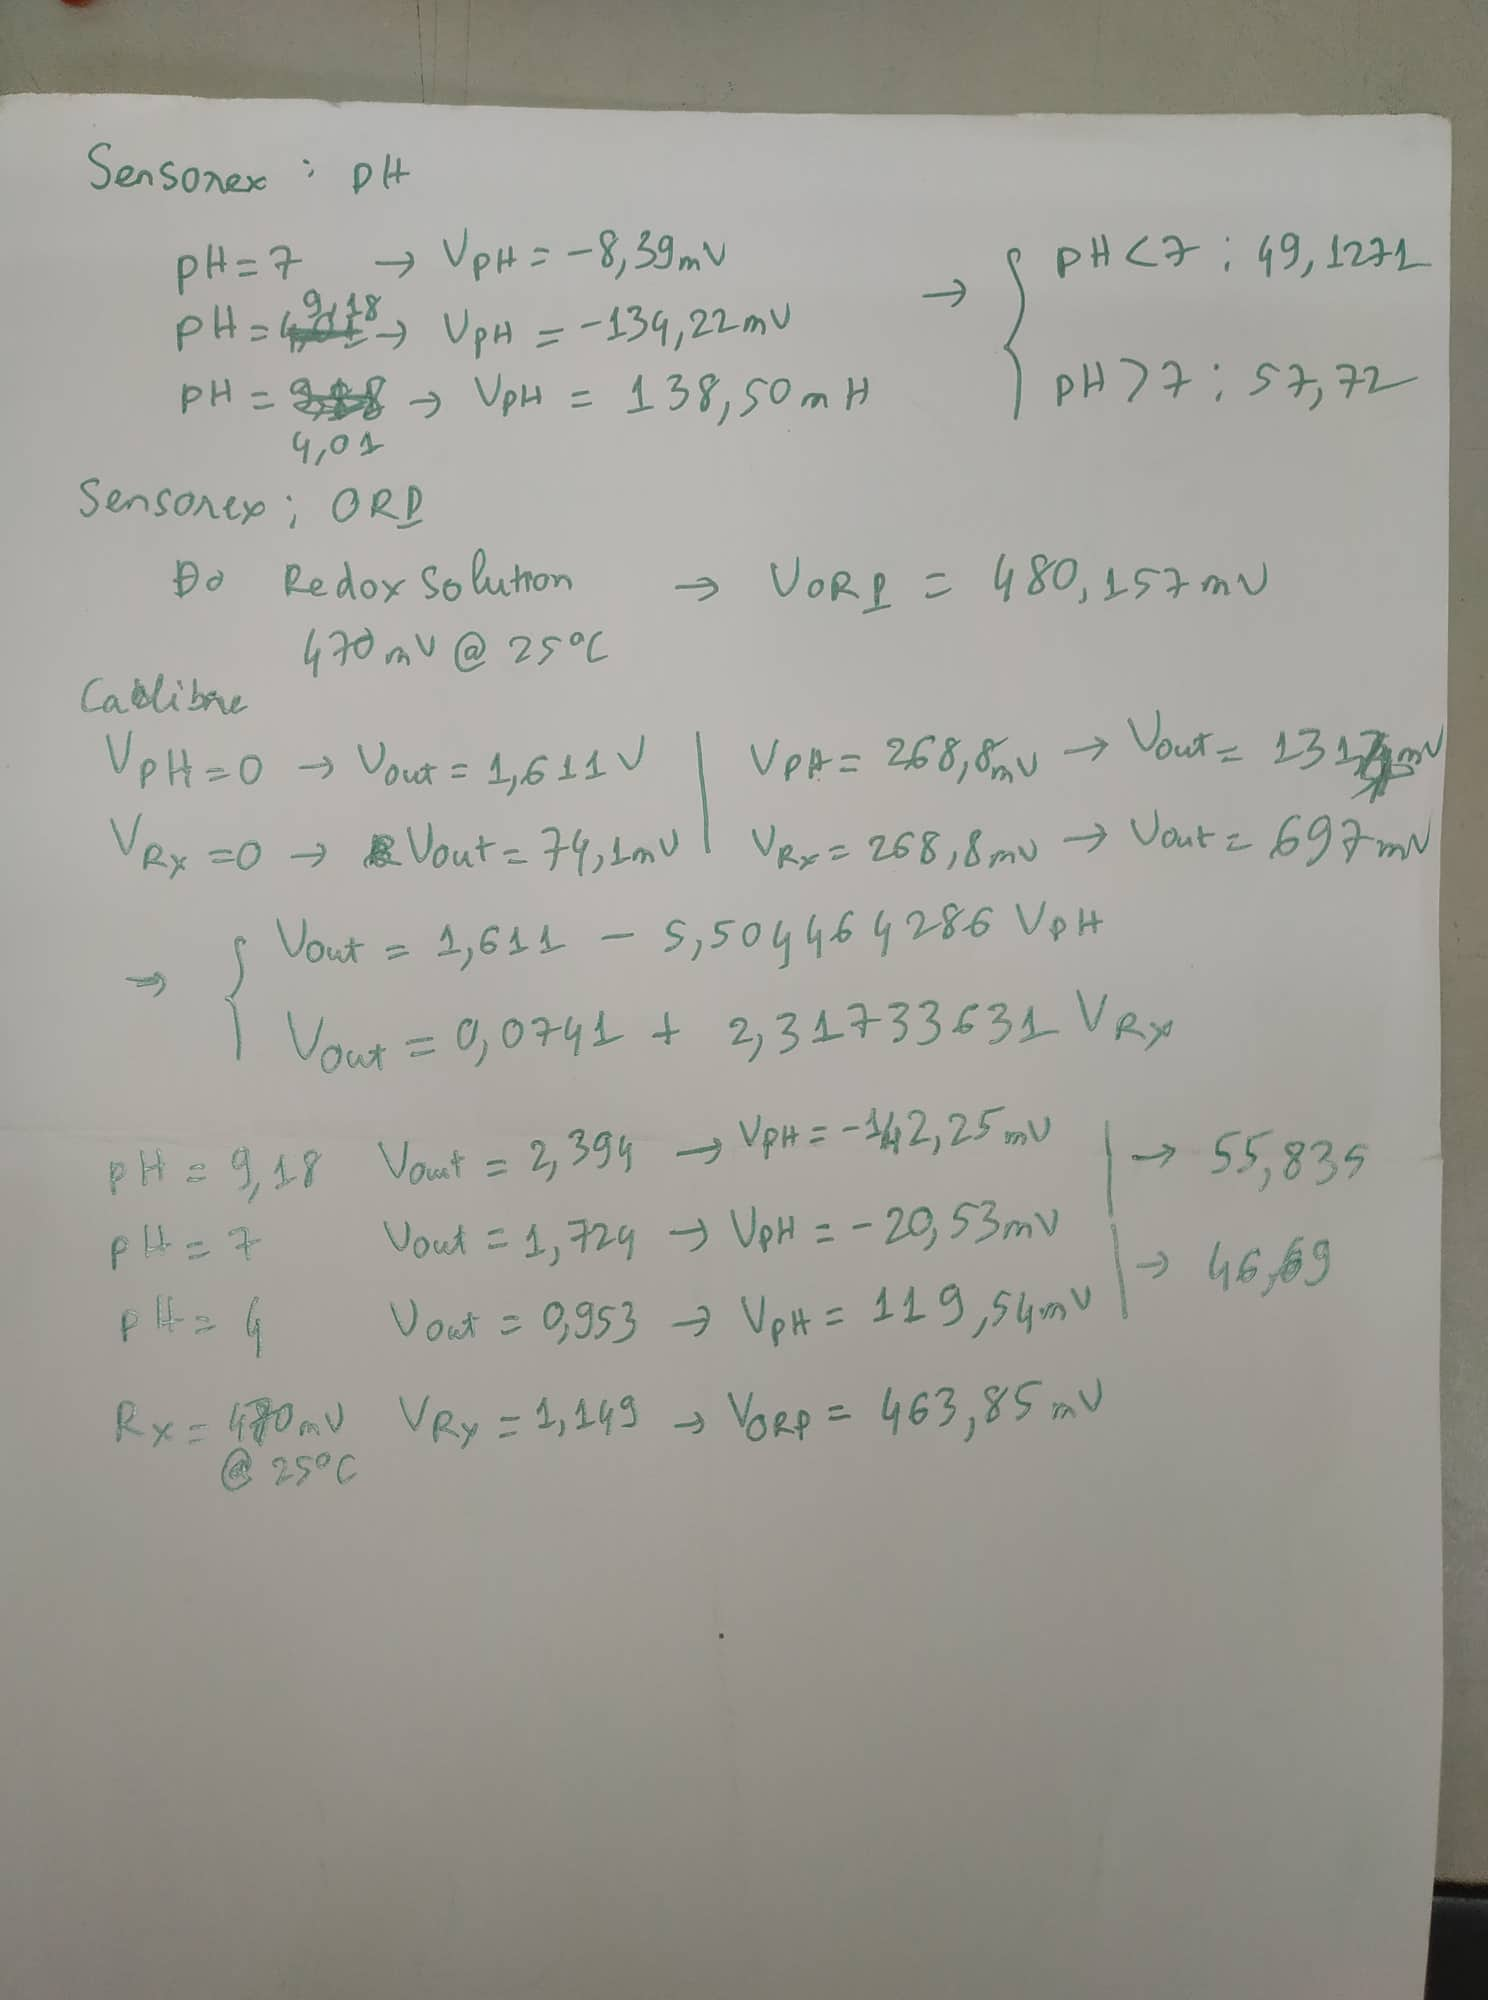 Sensorex : pH
pH = 7 → VpH = -8,39mV
pH = 9,18 → VpH = -134,22mV
pH = 4,01 → VpH = 138,50mH
→ { pH < 7 : 49,1271
pH > 7 : 57,72
Sensorex : ORP
Đo Redox Solution → VORP = 480,157mV
470mV @ 25°C
Calibre
VpH = 0 → Vout = 1,611V | VpH = 268,8mV → Vout = 131 mV
VRx = 0 → Vout = 74,1mV | VRx = 268,8mV → Vout = 697mV
→ { Vout = 1,611 - 5,504464286 VpH
Vout = 0,0741 + 2,31733631 VRx
pH = 9,18 Vout = 2,394 → VpH = -142,25mV
→ 55,835
pH = 7 Vout = 1,724 → VpH = -20,53mV
→ 46,69
pH = 4 Vout = 0,953 → VpH = 119,54mV
Rx = 470mV VRx = 1,149 → VORP = 463,85mV
@ 25°C